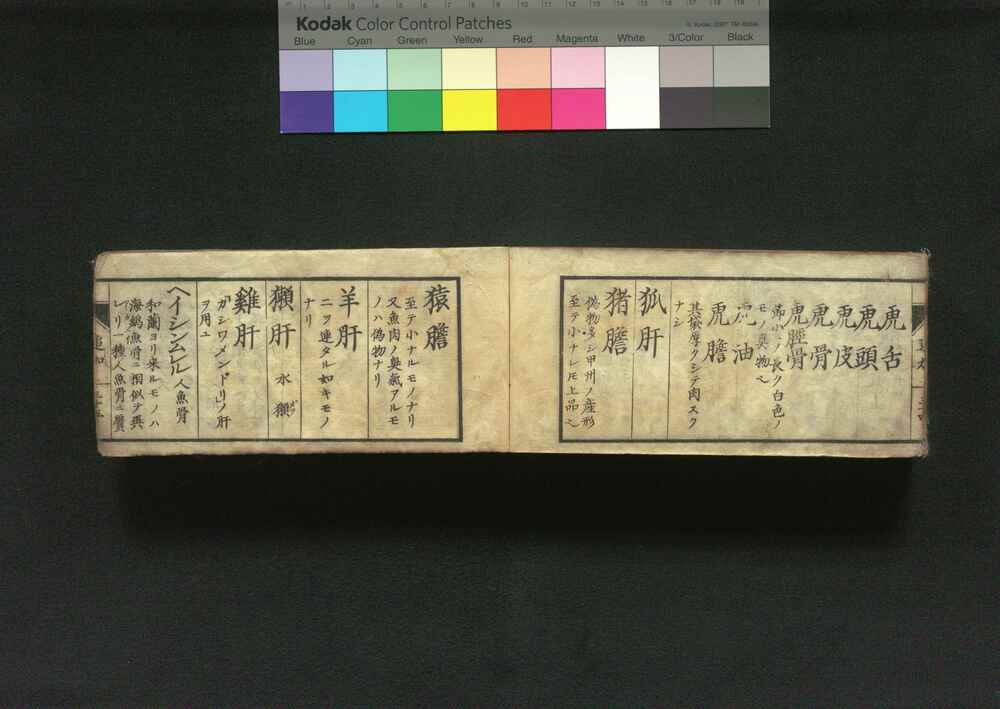 Kodak Color Control Patches
© Kodak, 2007 TM: Kodak
Blue Cyan Green Yellow Red Magenta White 3/Color Black
虎舌
虎頭
虎皮
虎骨
虎脛骨
長ク白色ノ
モノ真物也
虎油
虎膽
其嶽厚クシテ肉スク
ナシ
狐肝
偽物多シ甲州ノ産形
猪膽
至テ小ナレ𪜈上品也
猿膽
至テ小ナルモノナリ
又魚肉ノ臭氣アルモ
ノハ偽物ナリ
羊肝
ニツ連タル如キモノ
ナリ
獺肝 水獺
雞肝
カシワメンドリノ肝
ヲ用ユ
ヘイシムレル 人魚骨
和蘭ヨリ来ルモノハ
海鷂魚骨ニ相似テ異
レリ一種人魚骨ニ贋